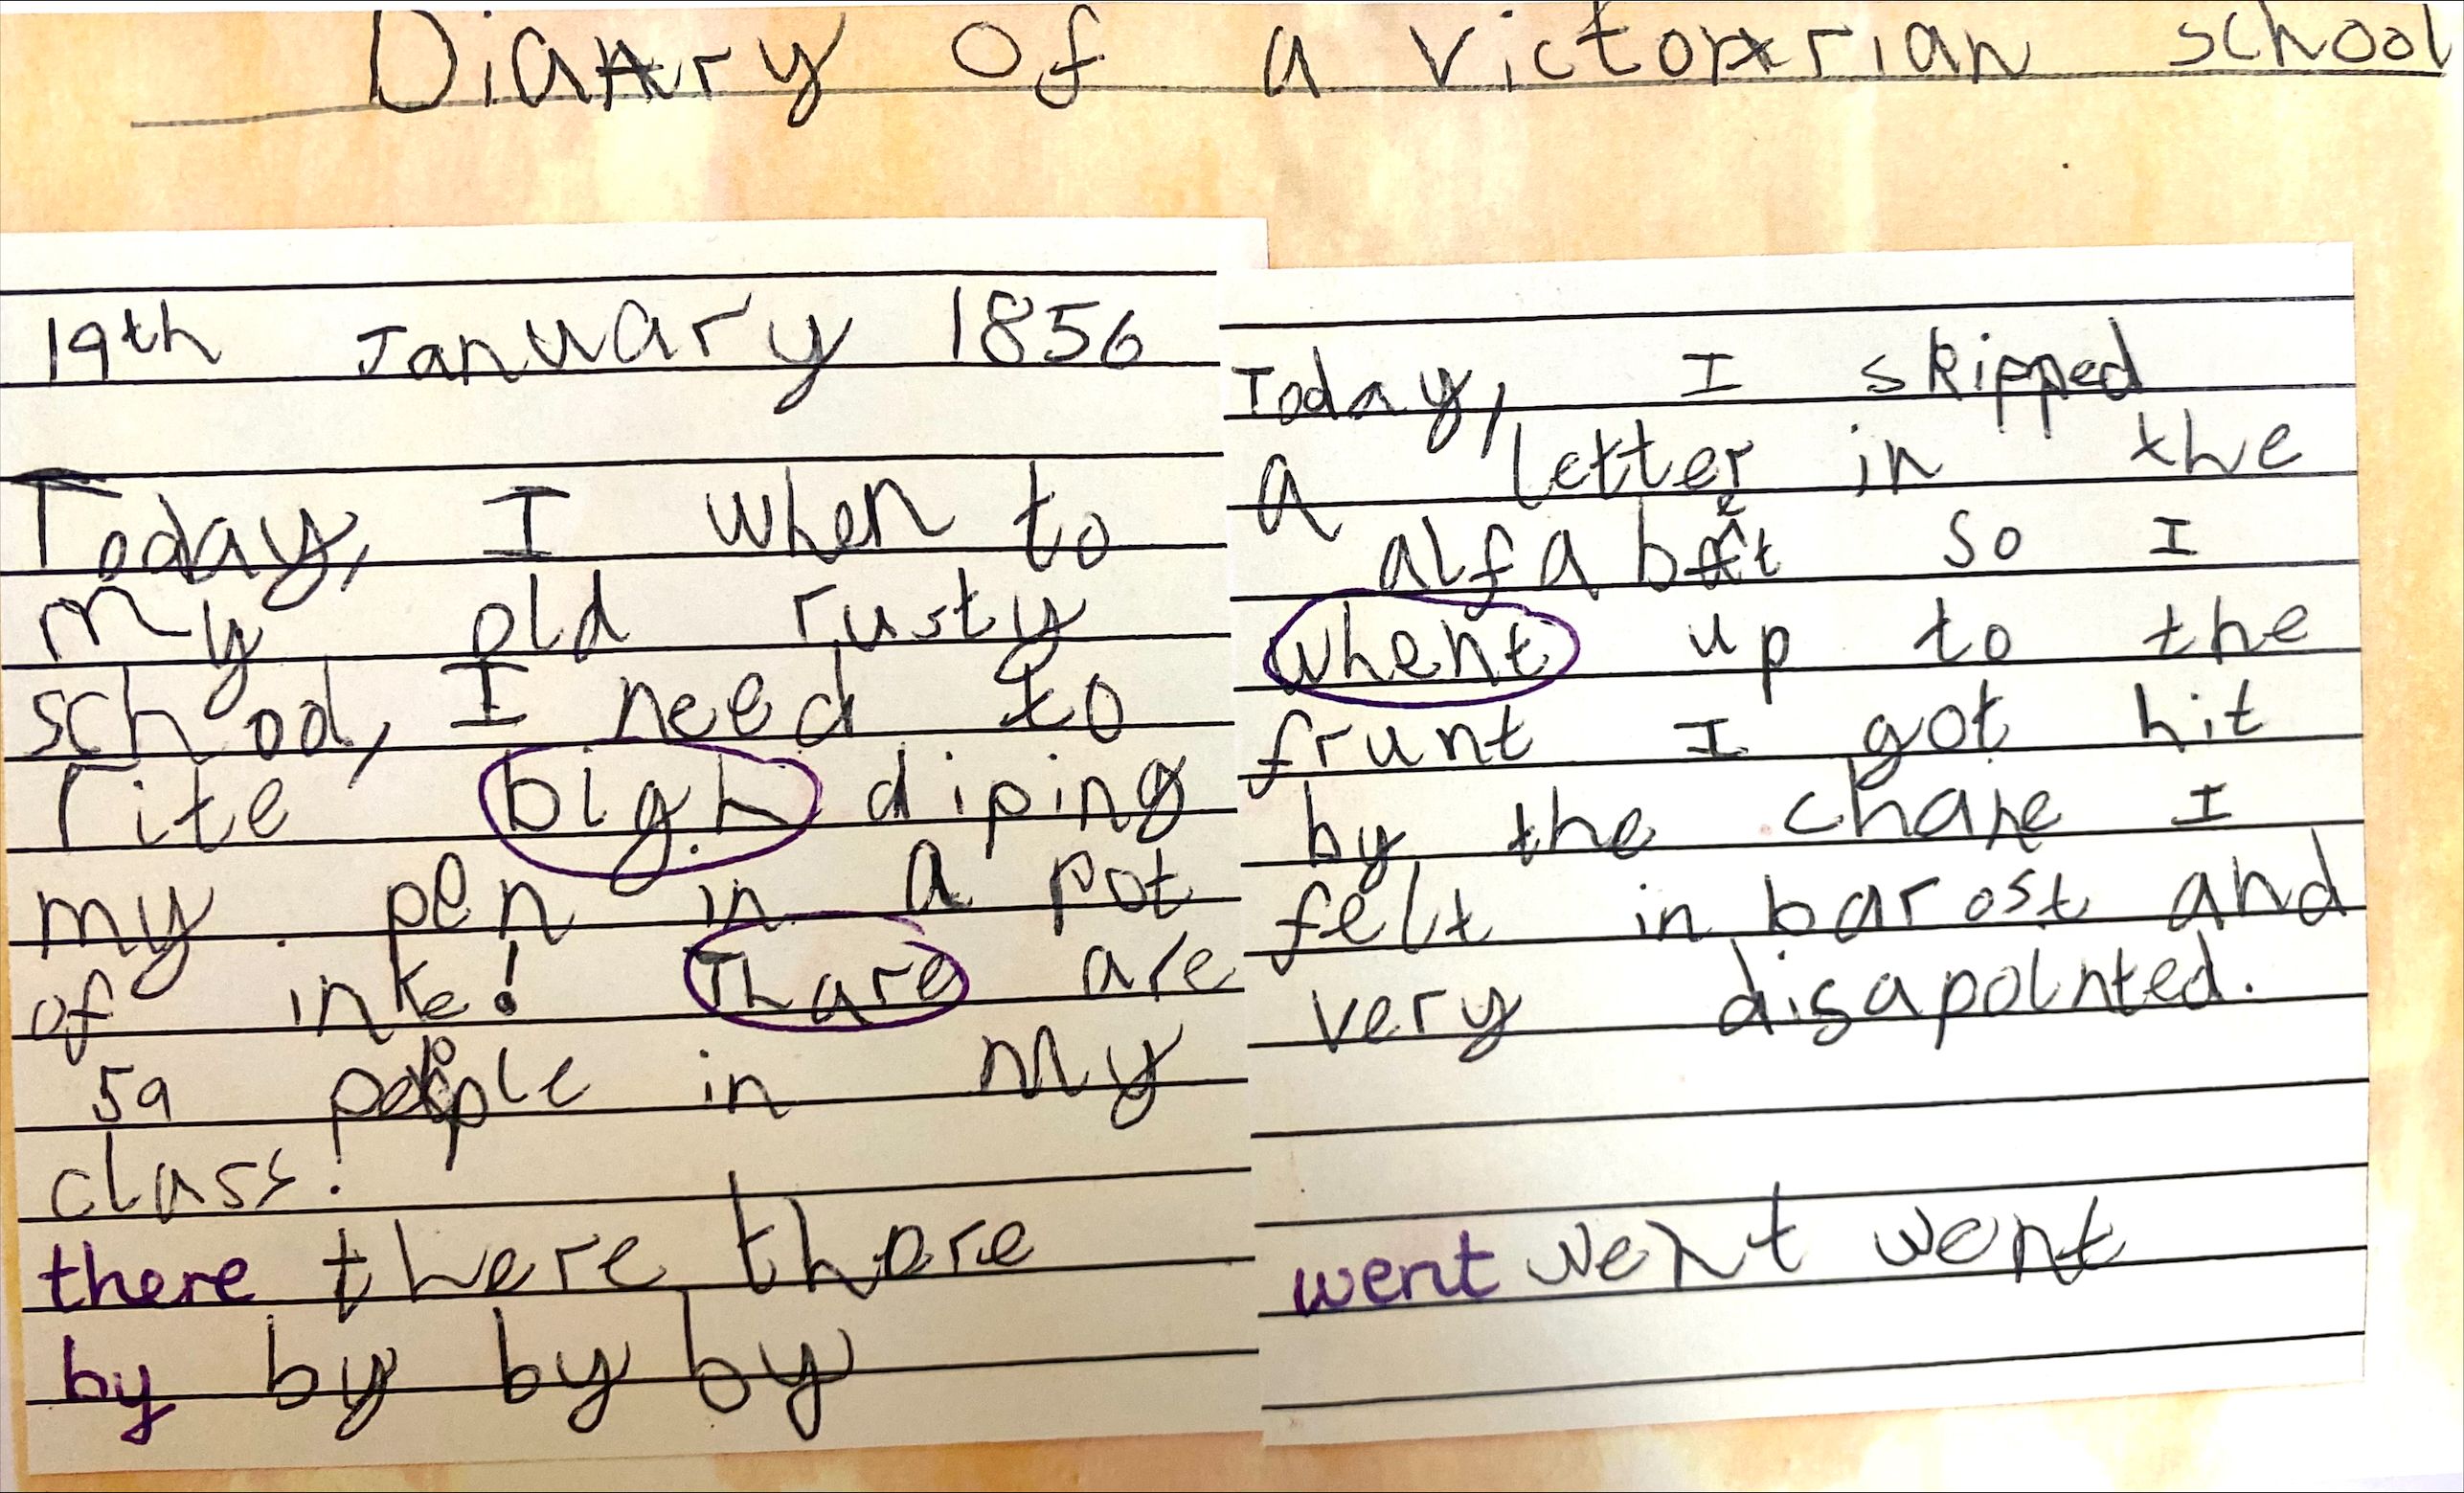 Diary of a victorian school
19th January 1856
Today, I when to
my old rusty
school, I need to
rite bigh diping
my pen in a pot
of inke! Thare are
59 people in my
class!
there there there
by by by by
Today, I skipped
a letter in the
alfabet so I
whent up to the
frunt I got hit
by the chane I
felt in barost and
very disapointed.
went went went